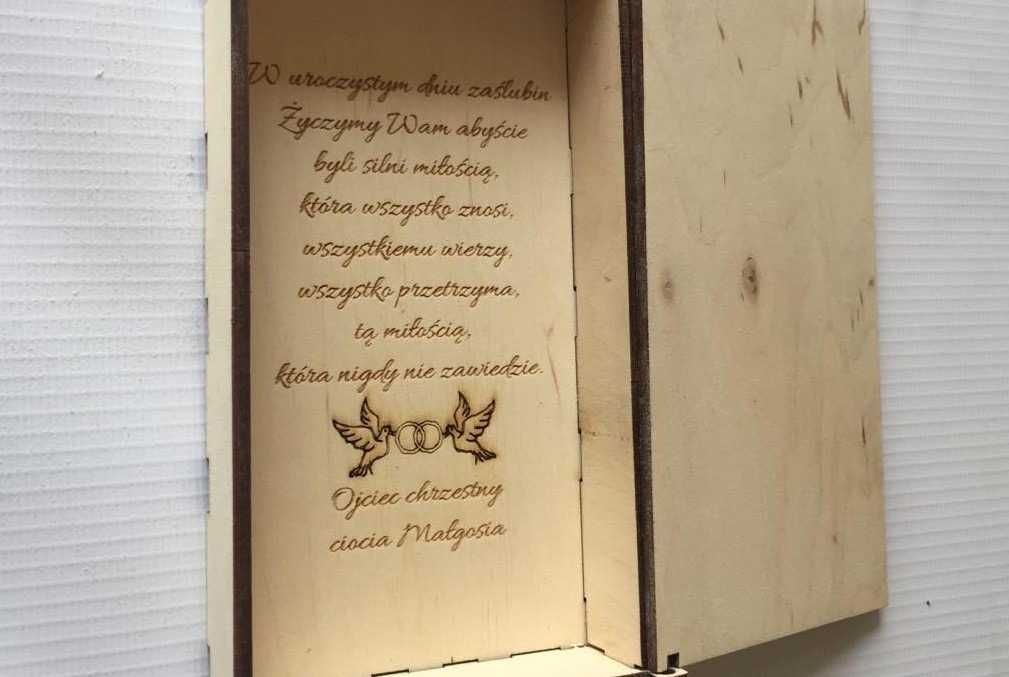 W uroczystym dniu zaślubin
Życzymy Wam abyście
byli silni miłością,
która wszystko znosi,
wszystkiemu wierzy,
wszystko przetrzyma,
tą miłością,
która nigdy nie zawiedzie.
Ojciec chrzestny
ciocia Małgosia